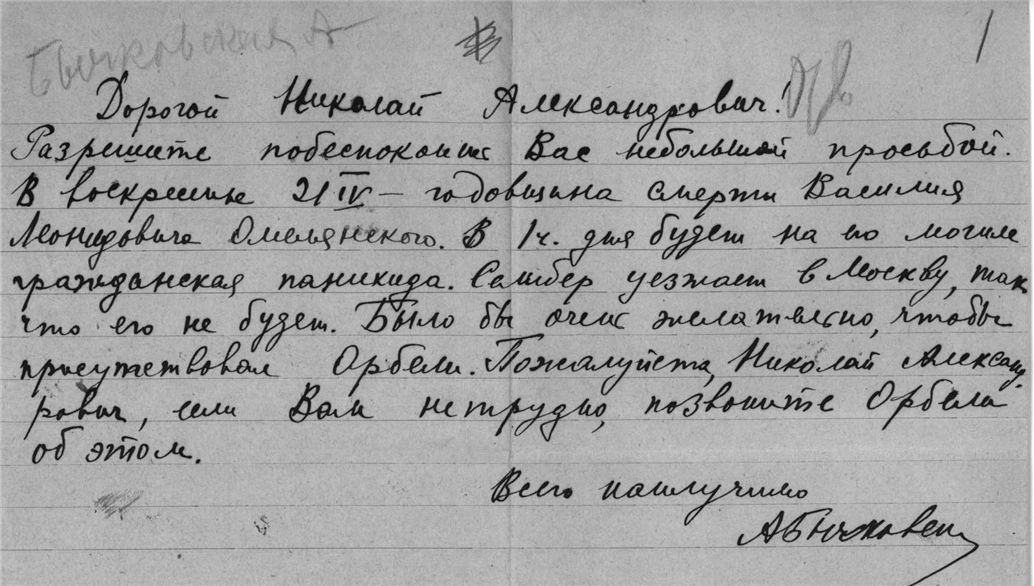 Бычковская А
1
Дорогой Николай Александрович!
Разрешите побеспокоить Вас небольшой просьбой.
В воскресенье 21 IV – годовщина смерти Василия
Леонидовича Омелянского. В 1 ч. дня будет на его могиле
гражданская панихида. уезжает в Москву, так
что его не будет. Было бы очень желательно, чтобы
присутствовал Орбели. Пожалуйста, Николай Александ
рович, если Вам нетрудно, позвоните Орбели
об этом.
Всего наилучшего
АБычковск